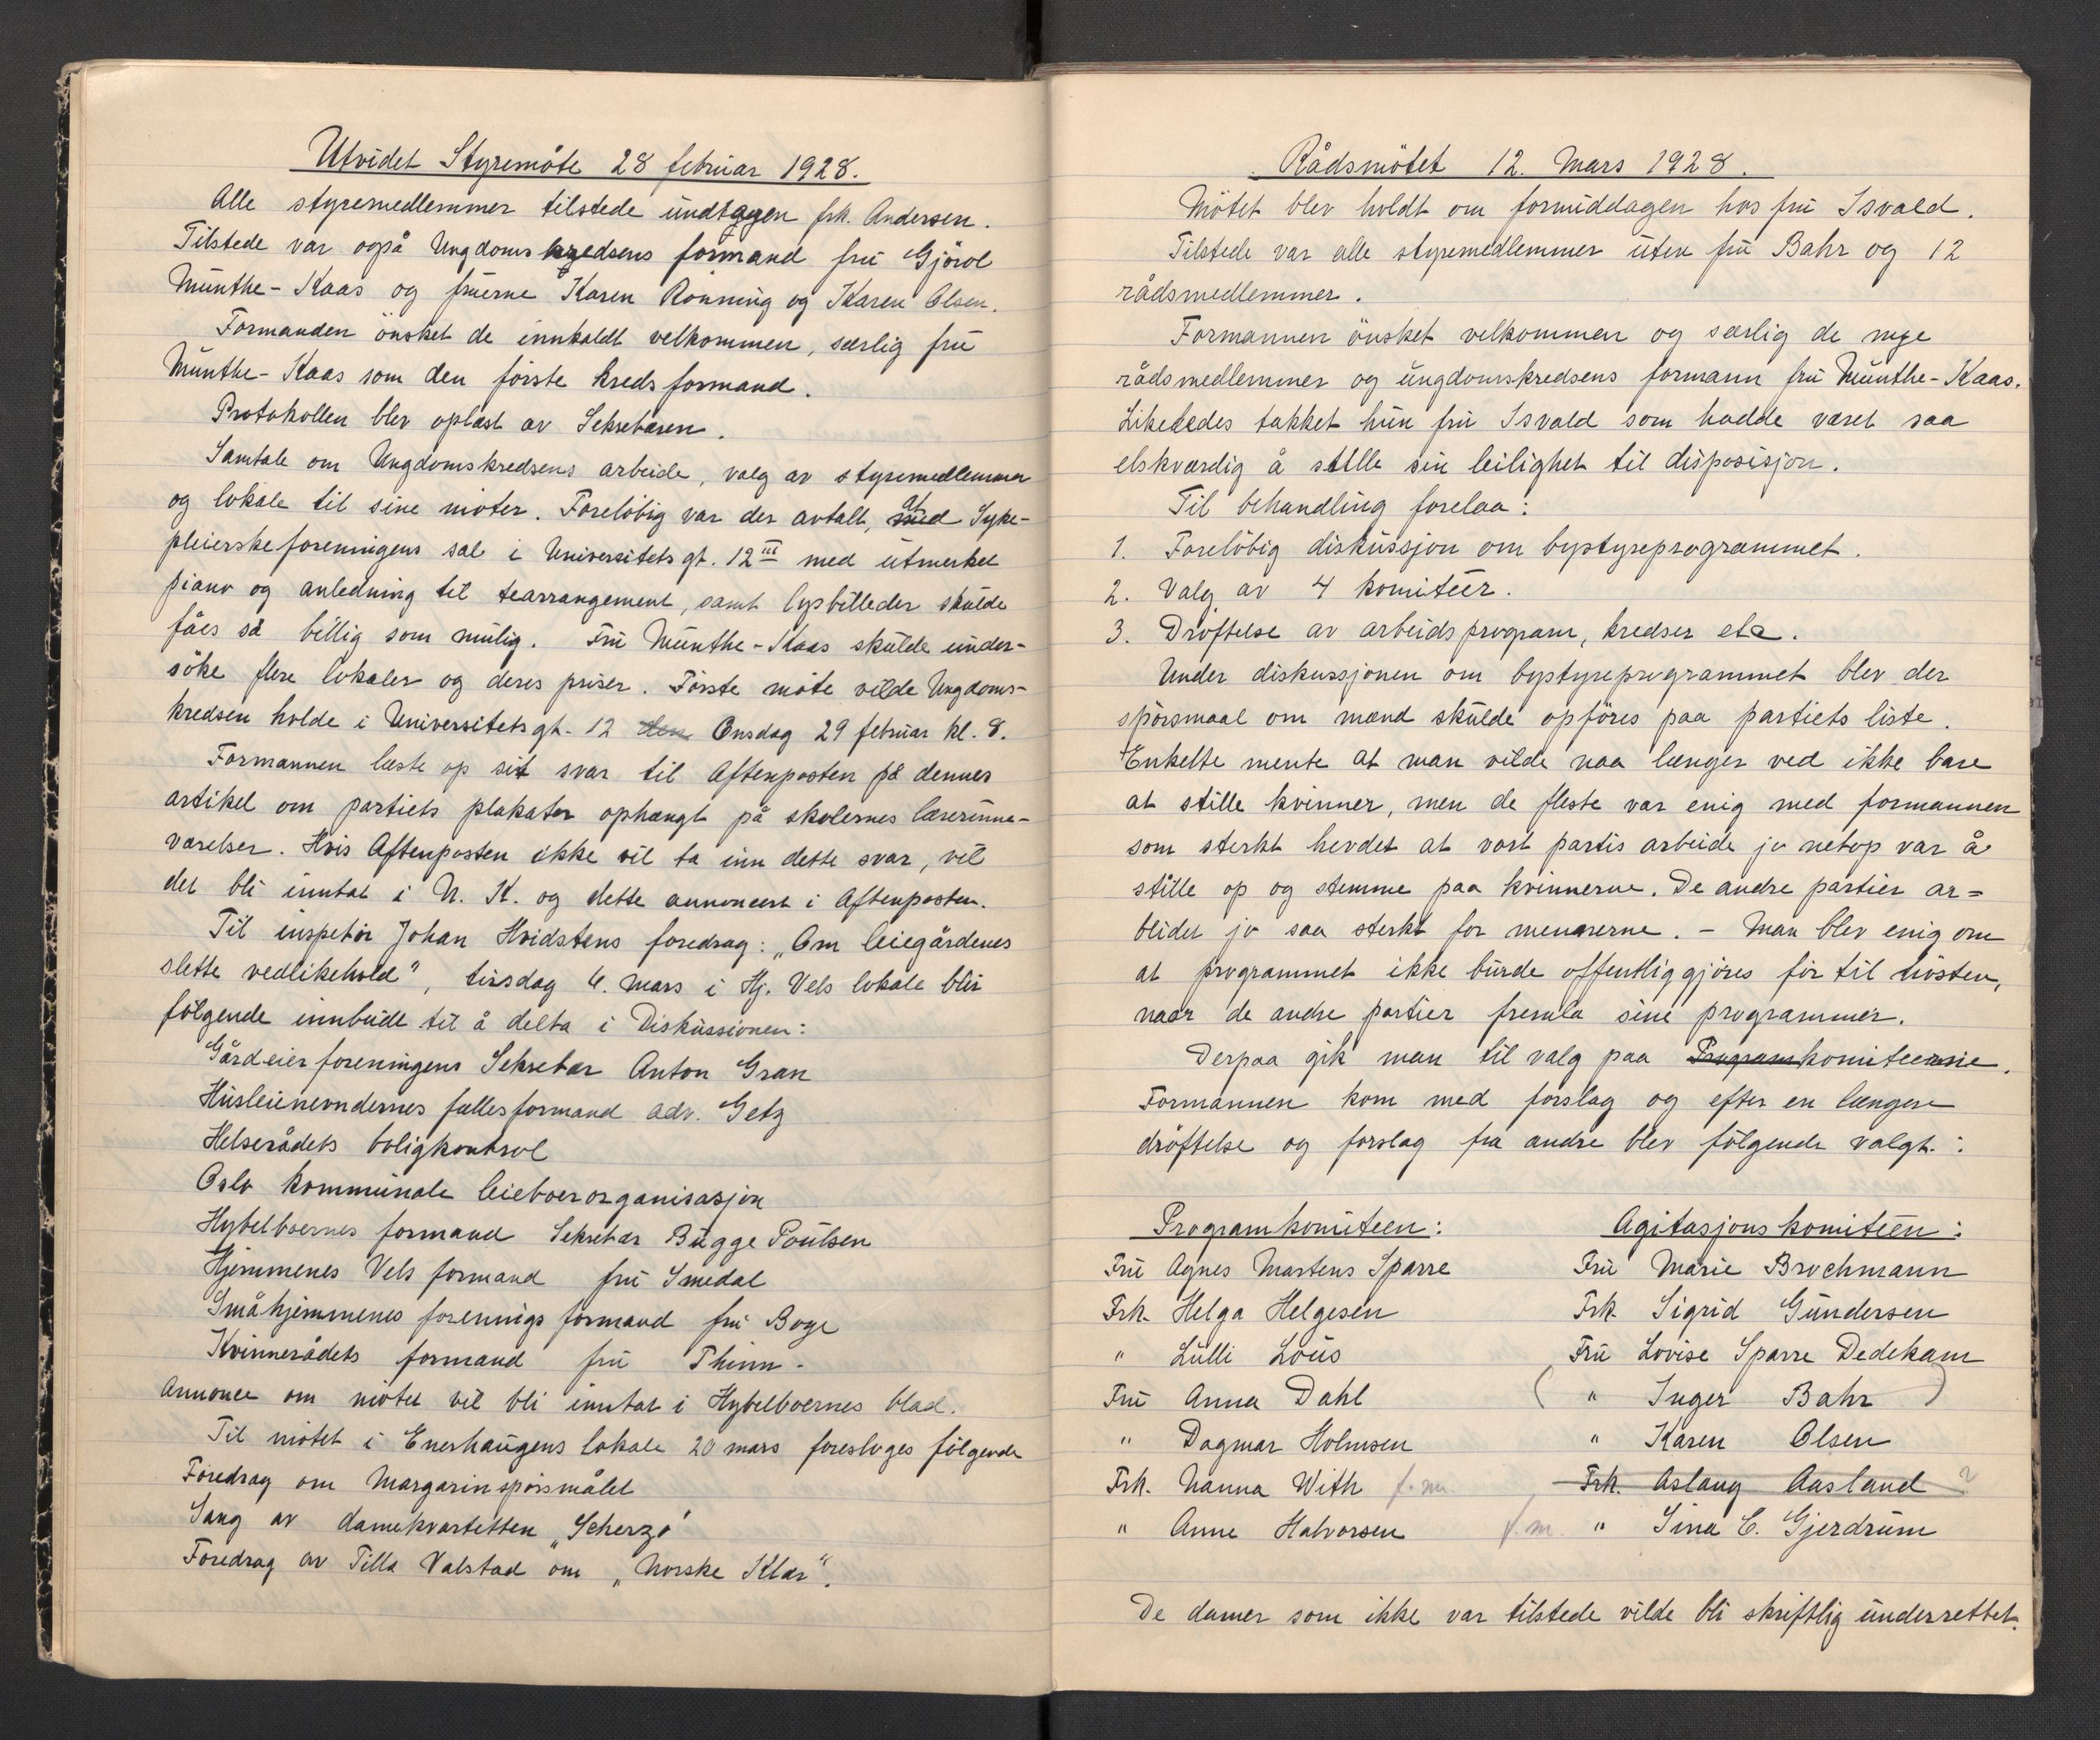 Utvidet Styremöte 28 februar 1928.
Alle styremedlemmer tilstede undtagen frk. Andersen.
Tilstede var også Ungdomskredsens formand fru Gjörol
Munthe-Kaas og fruerne Karen Rönning og Karen Olsen.
Formanden önsket de innkaldt velkommen, særlig fru
Munthe-Kaas som den förste kredsformand.
Protokollen blev oplæst av Sekretæren.
Samtale om Ungdomskredsens arbeide, valg av styremedlemmer
og lokale til sine möter. Forelöbig var der avtalt, Syke-
pleierskeforeningens sal i Universitetsgt. 12 III med utmerket
piano og anledning til tearrangement, samt lysbilleder skulde
fåes så billig som mulig. Fru Munthe-Kaas skulde under-
söke flere lokaler og deres priser. Förste möte vilde Ungdoms-
kredsen holde i Universitetsgt. 12 den Onsdag 29 februar kl. 8.
Formannen læste op sit svar til Aftenposten på dennes
artikel om partiets plakater ophængt på skolernes lærerinne-
værelser. Hvis Aftenposten ikke vil ta inn dette svar, vil
det bli inntat i N. K. og dette annoncert i Aftenposten.
Til inspektör Johan Hvidstens foredrag: „Om leiegårdenes
slette vedlikehold", tirsdag 6. mars i Hj. Vels lokale blir
fölgende innbudt til å delta i Diskussionen:
Gårdeierforeningens Sekretær Anton Gran
Husleienevndernes fællesformand adv. Getz
Helserådets boligkontrol
Oslo kommunale leieboerorganisasjon
Hybelboernes formand Sekretær Bugge Poulsen
Hjemmenes Vels formand fru Smedal
Småhjemmenes forenings formand fru Boye
Kvinnerådets formand fru Thinn.
Annonce om mötet vil bli inntat i Hybelboernes blad.
Til mötet i Enerhaugens lokale 20 mars foreslåges fölgende
Foredrag om Margarinspörsmålet
Sang av damekvartetten „Scherzo"
Foredrag av Tilla Valstad om „Norske Klær".
Rådsmötet 12. Mars 1928.
Mötet blev holdt om formiddagen hos fru Isvald.
Tilstede var alle styremedlemmer uten fru Bahr og 12
rådsmedlemmer.
Formannen önsket velkommen og særlig de nye
rådsmedlemmer og ungdomskredsens formann fru Munthe-Kaas.
Likeledes takket hun fru Isvald som hadde været saa
elskværdig å stille sin leilighet til disposisjon.
Til behandling forelaa:
1. Forelöbig diskussjon om bystyreprogrammet.
2. Valg av 4 komiteer.
3. Dröftelse av arbeidsprogram, kredser etc.
Under diskussjonen om bystyreprogrammet blev der
spörsmaal om mænd skulde opföres paa partiets liste.
Enkelte mente at man vilde naa længer ved ikke bare
at stille kvinner, men de fleste var enig med formannen
som sterkt hevdet at vort partis arbeide jo netop var å
stille op og stemme paa kvinnerne. De andre partier ar=
beidet jo saa sterkt for mennerne. - Man blev enig om
at programmet ikke burde offentliggjöres för til hösten,
naar de andre partier fremla sine programmer.
Derpaa gik man til valg paa Programkomiteerne.
Formannen kom med forslag og efter en længere
dröftelse og forslag fra andre blev fölgende valgt:
Programkomiteen: Agitasjonskomiteen:
Fru Agnes Martens Sparre Fru Marie Brochmann
Frk. Helga Helgesen Frk. Sigrid Gundersen
" Lulli Lous Fru Lovise Sparre Dedekam
Fru Anna Dahl ( " Inger Bahr )
" Dagmar Holmsen " Karen Olsen
Frk. Nanna With f.m. Frk. Aslaug Aasland ?
" Anne Halvorsen f.m. " Sina C. Gjerdrum
De damer som ikke var tilstede vilde bli skriftlig underrettet.